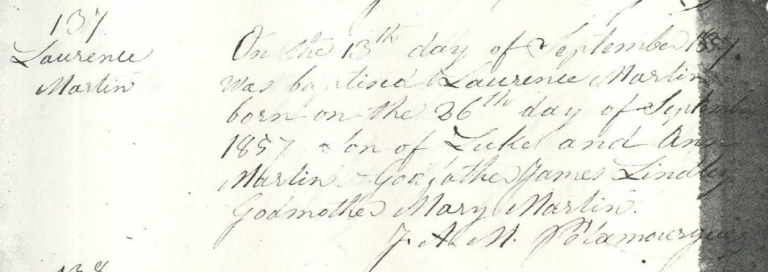 137
Laurence
Martin
On the 13th day of September 1857
was baptised Laurence Martin
born on the 26th day of September
1857 son of Luke and Ann
Martin. Godfather James Lindley
Godmother Mary Martin.
J. A. M. Pelamourgues
138